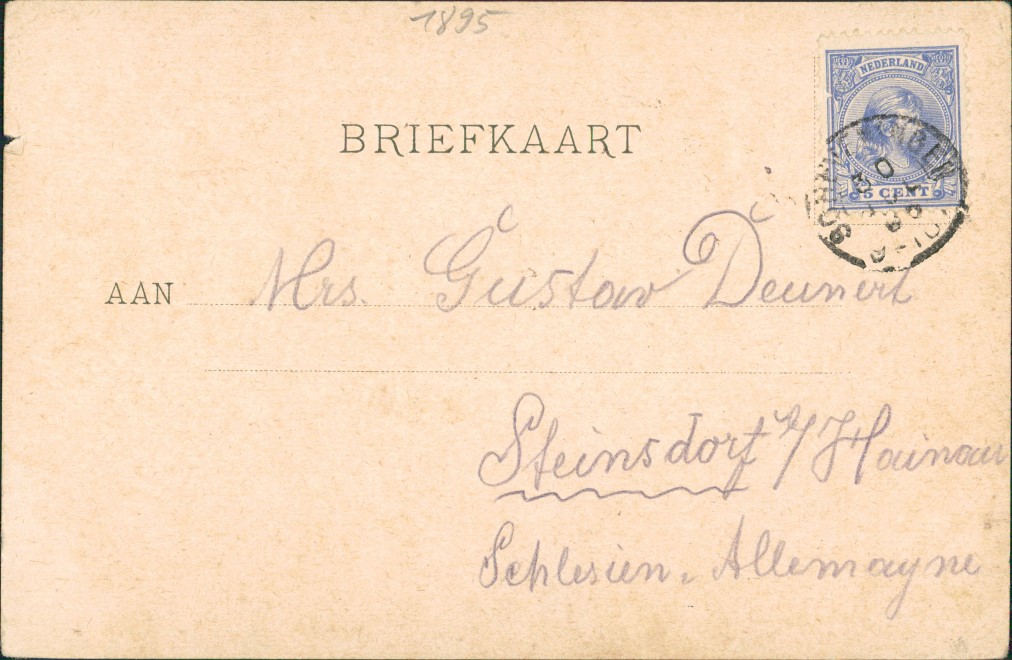 1895
NEDERLAND
5 CENT
BRIEFKAART
AAN Mrs. Gustav Deunert
Steinsdorf b/Hainau
Schlesien. Allemagne